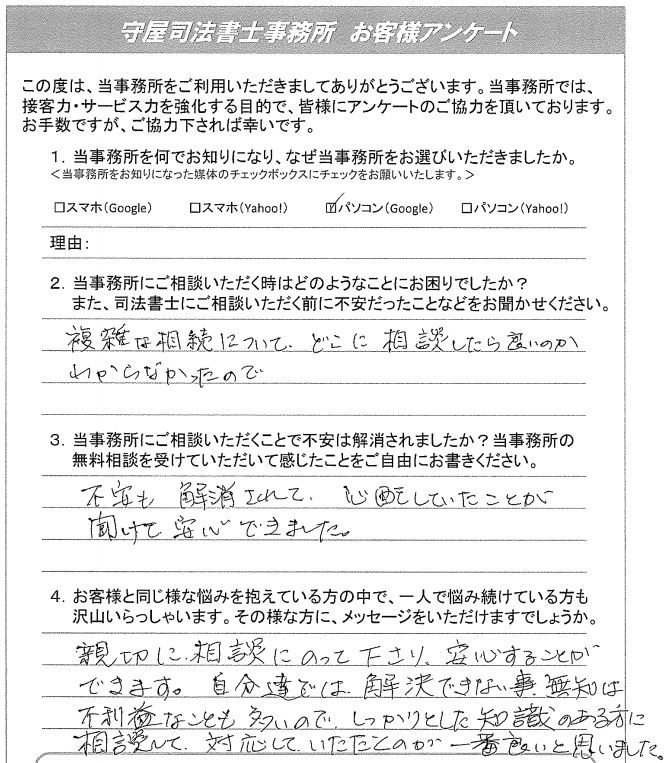 守屋司法書士事務所 お客様アンケート
この度は、当事務所をご利用いただきましてありがとうございます。当事務所では、
接客力・サービス力を強化する目的で、皆様にアンケートのご協力を頂いております。
お手数ですが、ご協力下されば幸いです。
1. 当事務所を何でお知りになり、なぜ当事務所をお選びいただきましたか。
＜当事務所をお知りになった媒体のチェックボックスにチェックをお願いいたします。＞
□スマホ(Google) □スマホ(Yahoo!) ☑パソコン(Google) □パソコン(Yahoo!)
理由:
2. 当事務所にご相談いただく時はどのようなことにお困りでしたか?
また、司法書士にご相談いただく前に不安だったことなどをお聞かせください。
複雑な相続について、どこに相談したら良いのか
わからなかったので
3. 当事務所にご相談いただくことで不安は解消されましたか?当事務所の
無料相談を受けていただいて感じたことをご自由にお書きください。
不安も解消されて、心配していたことが
聞けて安心できました。
4. お客様と同じ様な悩みを抱えている方の中で、一人で悩み続けている方も
沢山いらっしゃいます。その様な方に、メッセージをいただけますでしょうか。
親切に相談にのって下さり、安心することが
できます。自分達では解決できない事、無知は
不利益なことも多いので、しっかりとした知識のある方に
相談して、対応していただくのが一番良いと思いました。